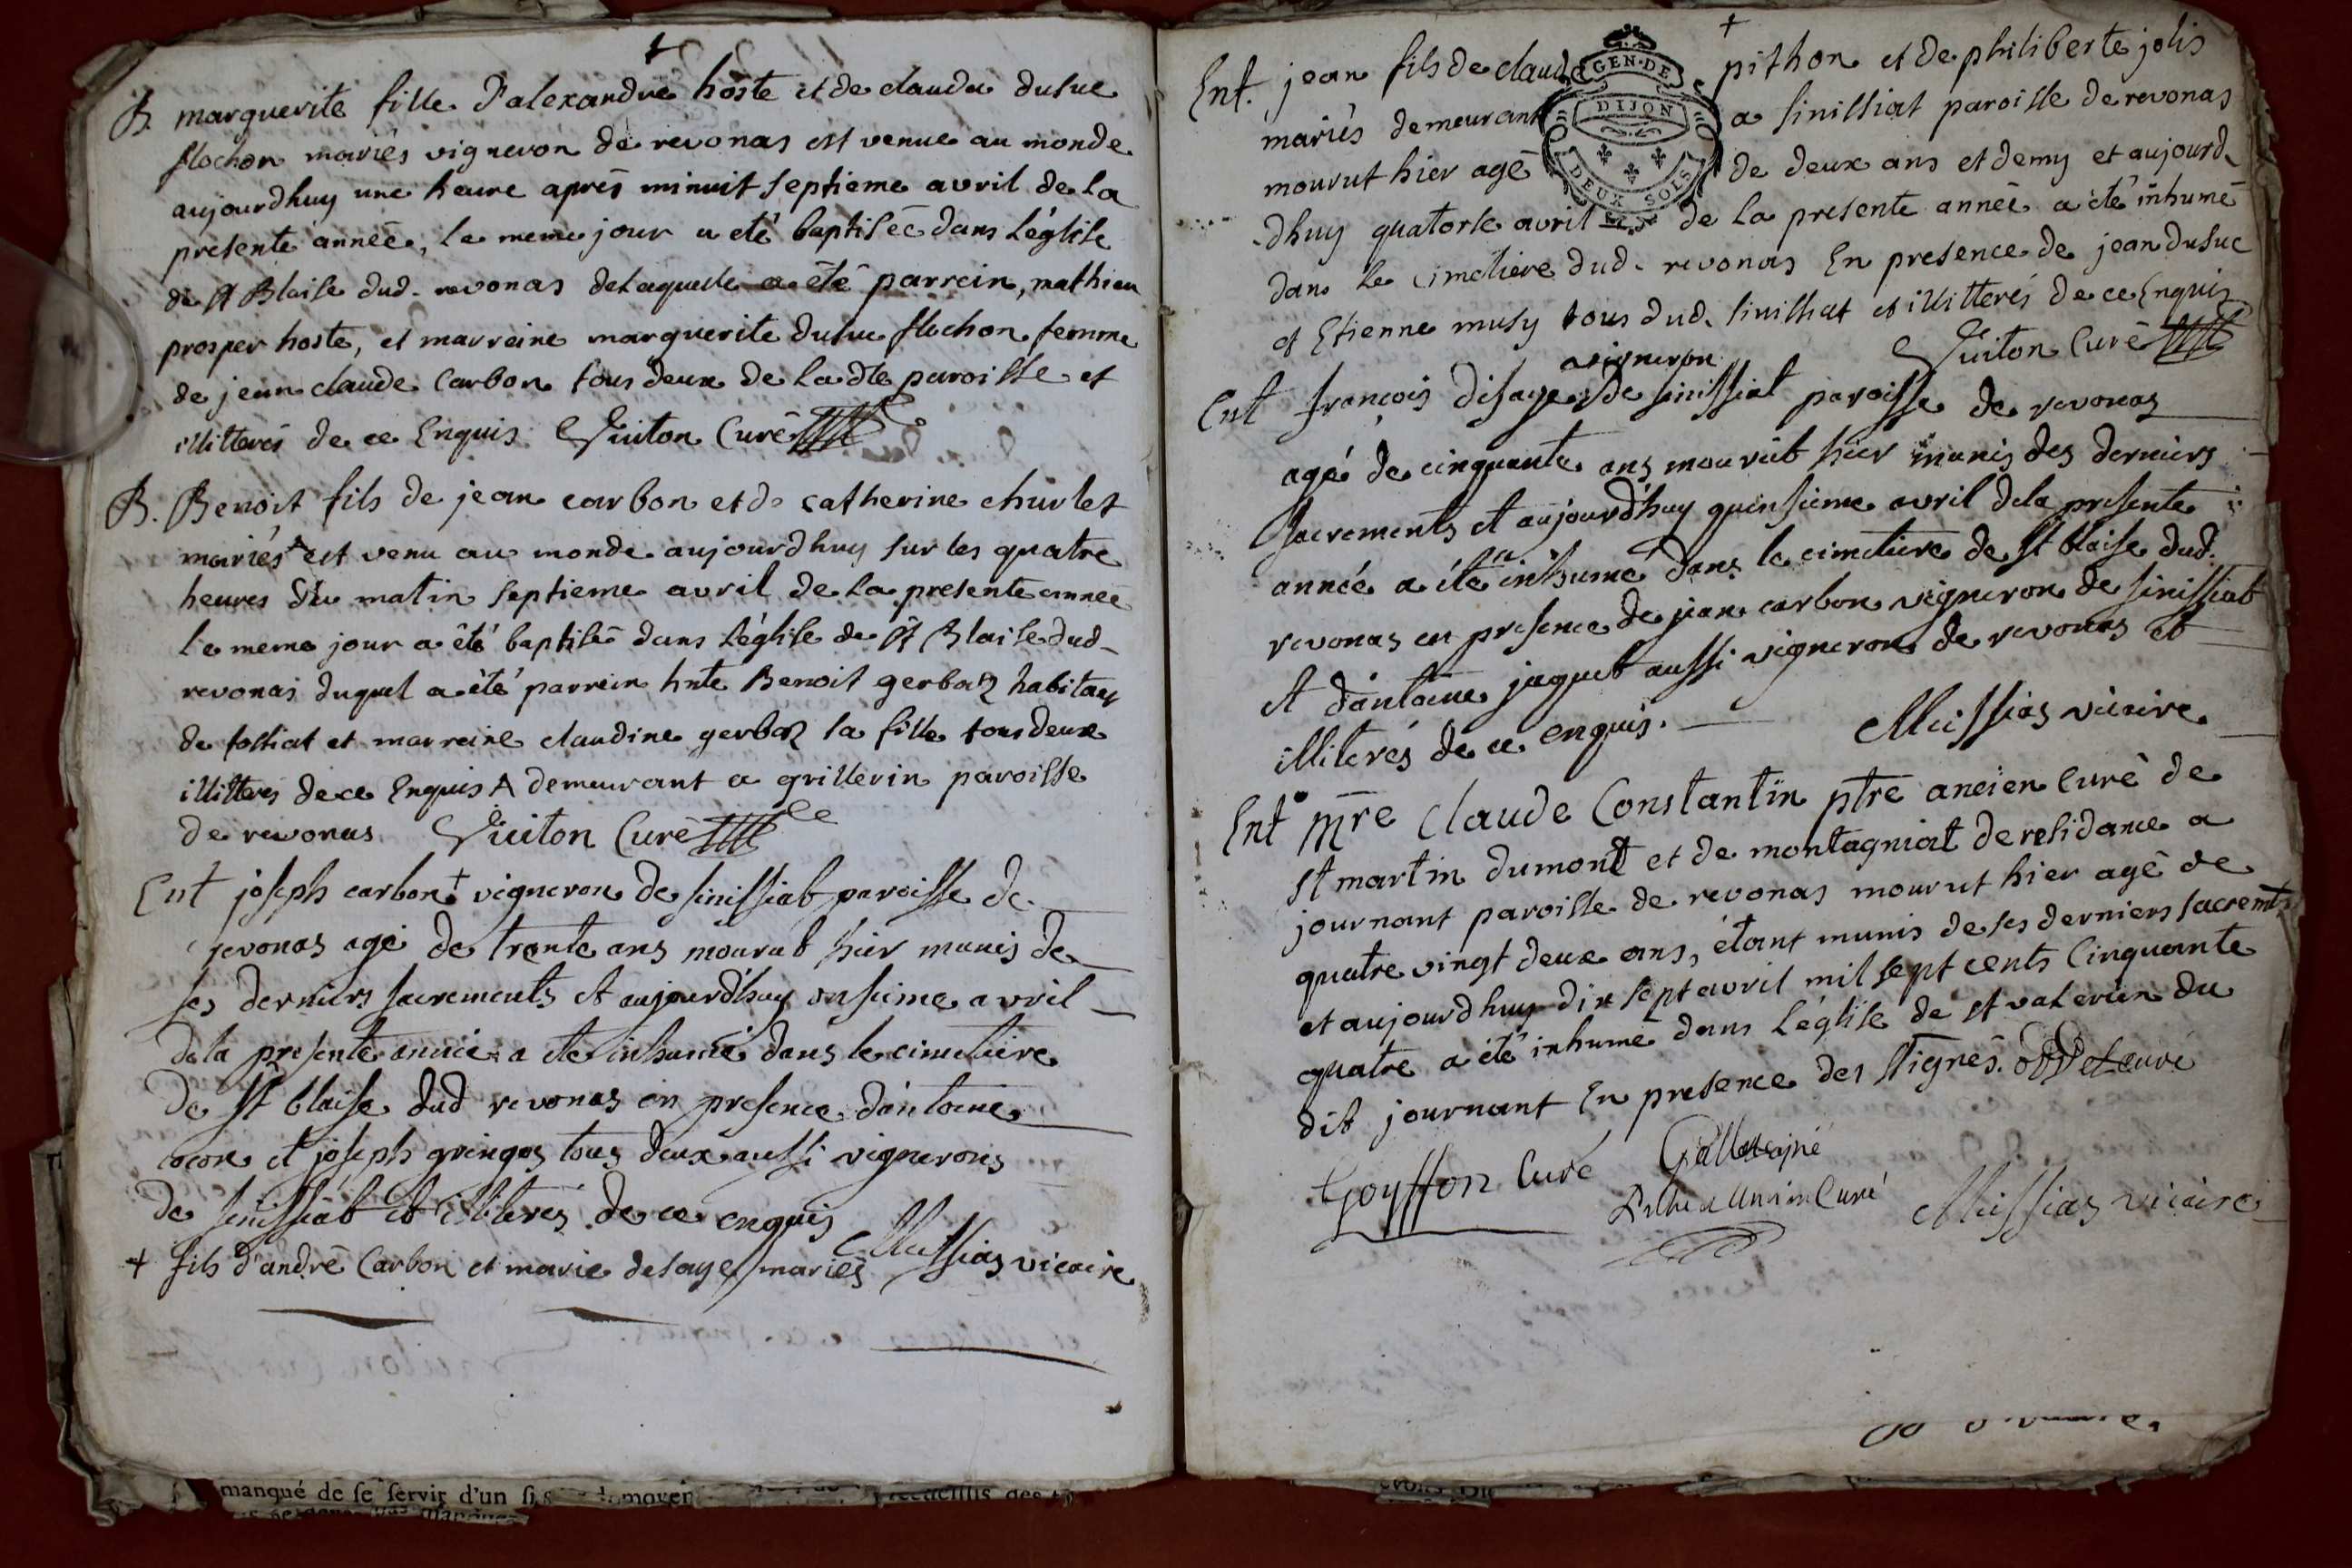 +
B. marguerite fille d'alexandre hoste et de claudu dusuc
flochon mariés vigneron de revonas est venue au monde
aujourdhuy une heure aprés minuit septieme avril de la
presente année, le meme jour a eté baptisée dans L'église
de st Blaise dud. revonas de laquelle a été parrein, mathieu
prosper hoste, et marreine marguerite dusuc flochon femme
de jean claude Carbon tous deux de la dte paroisse et
illitterés de ce Enquis. Guiton Curé
B. Benoit fils de jean carbon et de catherine churlet
mariés A est venu au monde aujourdhuy sur les quatre
heures du matin septieme avril de la presente année
le meme jour a été baptisé dans L'église de st Blaise dud
revonas duquel a été parrein hnte Benoit gerbaz habitan
de tossiat et marreine claudine gerbaz sa fille tous deux
illitterés de ce Enquis A demeurant a grillerin paroisse
de revonas. Guiton Curé
Ent joseph carbon + vigneron de sinissiat paroisse de
revonas agé de trente ans mourut hier munis de
ses derniers sacrements et aujourd'huy onsieme avril
de la presente année a eté inhumé dans le cimetiere
de st blaise dud revonas en presence d'antoine
cocon et joseph gringos tous deux aussi vignerons
de sinissiat et illiterés de ce enquis
+ fils d'andrê Carbon et marie desaye mariés Missias vicaire
+
Ent. jean fils de claude pithon et de philiberte jolis
mariés demeurant a sinissiat paroisse de revonas
mourut hier agé de deux ans et demy et aujourd
dhuy quatorse avril de la presente année a eté inhumé
dans le cimetiere dud. revonas En presence de jean dusuc
et Etienne musy tous dud. sinissiat et illitterés de ce Enquis
Guiton Curé
GEN. DE
DIJON
DEUX SOLS
vigneron
Ent françois desaye de sinissiat paroisse de revonas
agé de cinquante ans mourut hier munis des derniers
sacrements et aujourd'huy quinsieme avril dela presente
année a été inhumé dans le cimetiere de st blaise dud.
revonas en presence de jean carbon vigneron de sinissiat
et d'antoine jaquet aussi vigneron de revonas et
illiterés de ce enquis. Missias vicaire
Ent Mre Claude Constantin ptre ancien Curé de
st martin dumont et de montagniat de residance a
journant paroisse de revonas mourut hier agé de
quatre vingt deux ans, étant munis de ses derniers sacremts
et aujourdhuy dix sept avril mil sept cents Cinquante
quatre a été inhumé dans L'église de st valerien du
dit journant En presence des signés.
Goyffon Curé
curé
Curé
Missias vicaire
manqué de se servir d'un